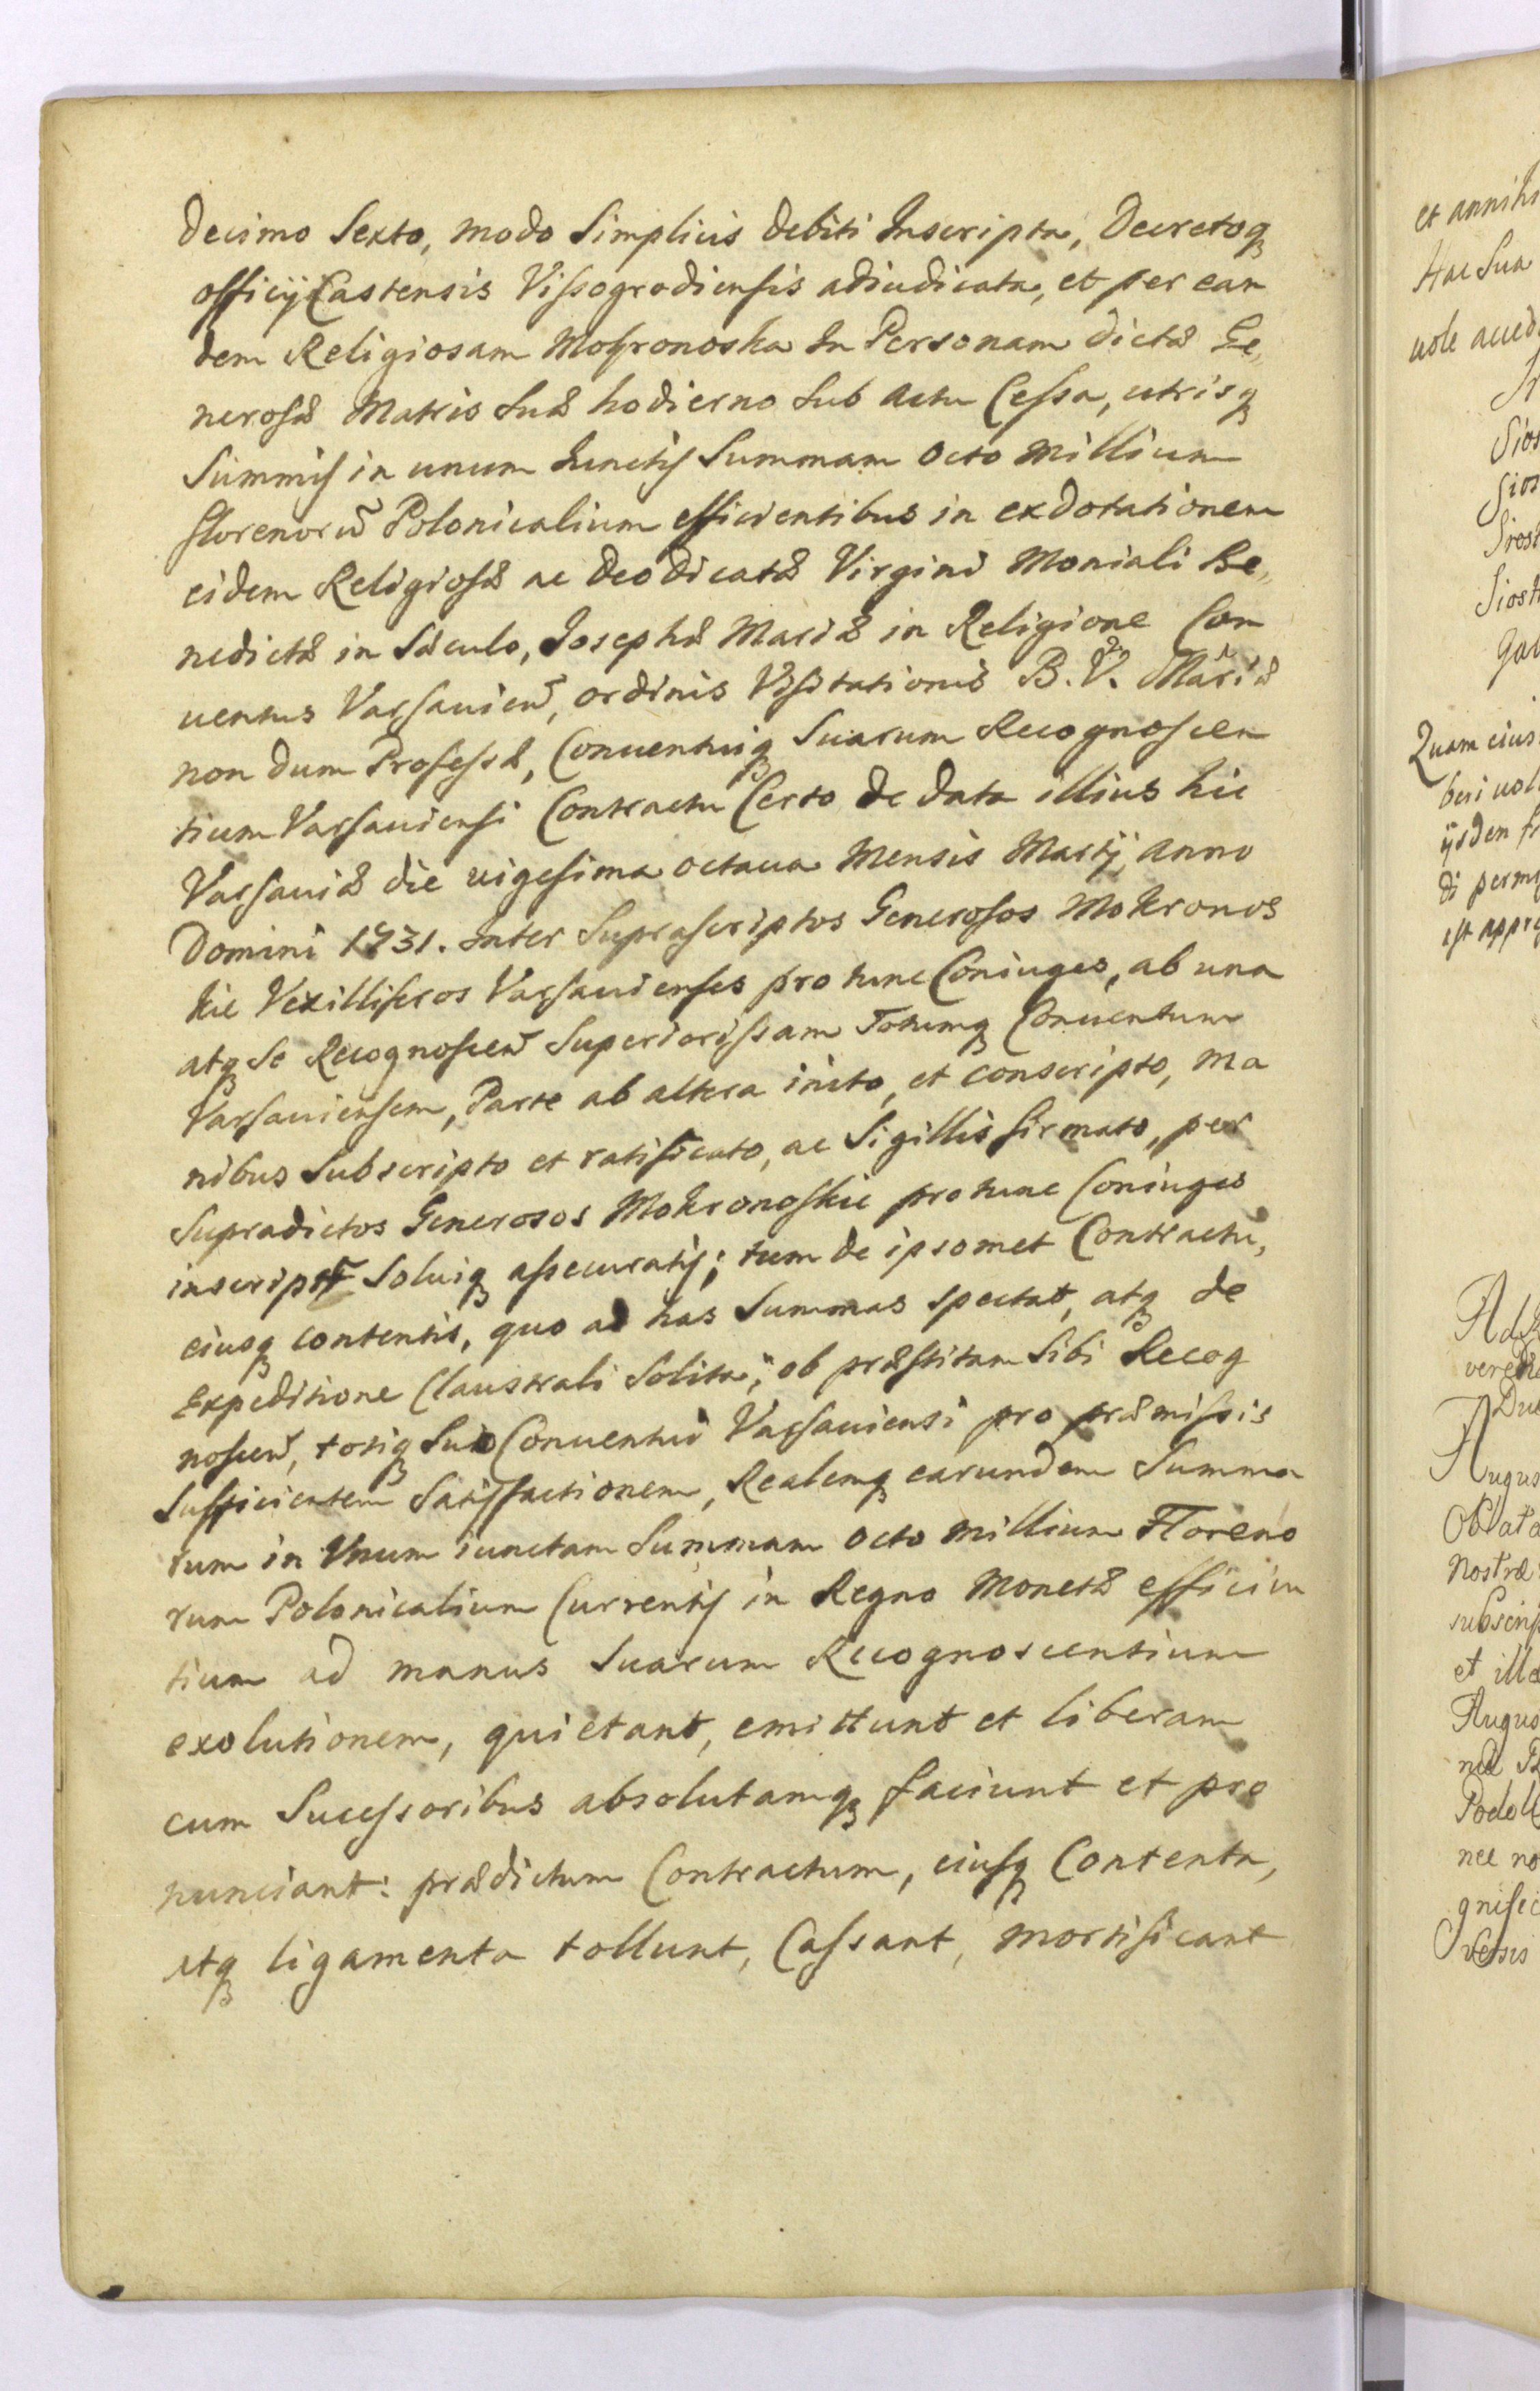 Decimo Sexto, modo Simplicis debiti Inscripta, Decretoq
officij Castensis Vissogrodiensis adiudicata, et per ean
dem Religiosam Mokronoska In Personam dictæ Ge„
nerosæ Matris Suæ hodierno Sub Actu Cessa, utrisq
Summis in unum Iunctis Summam Octo Millium
florenorũ Polonicalium efficientibus in exdotationem
eidem Religiosæ ac Deo dicatæ Virgini Moniali Be„
nedictæ in Sæculo, Josephæ Mariæ in Religione Con
uentus Varsavieñ, ordinis Visitationis B. V. Mariæ
non dum Professæ, Conuentuiq Suarum Recognoscen
tium Varsauiensi Contractu Certo de data illius hic
Varsauiæ die uigesima octaua Mensis Martij, Anno
Domini 1731. Inter Suprascriptos Generosos Mokronos
kie Vexilliferos Varsauienses pro tunc Coniuges, ab una
atq Se Recognosceñ Superiorissam Totumq Conuentum
Varsauiensem, Parte ab altera inito, et conscripto, Ma
nibus Subscripto et ratificato, ac Sigillis firmato, per
Supradictos Generosos Mokronoskie pro tunc Coniuges
inscriptis Soluiq assecuratis; tum de ipsomet Contractu,
eiusq contentis, quo ad has Summas spectat, atq de
Expeditione Claustrali Solita; ob præstitam Sibi Recog
nosceñ, totiq Suo Conuentui Varsauiensi pro præmissis
Sufficientem Satisfactionem, Realemq earundem Summa
rum in Unum iunctam Summam Octo Millium Floreno
rum Polonicalium Currentis in Regno Monetæ efficien
tium ad manus Suarum Recognoscentium
exolutionem, quietant, emittunt et liberam
cum Sucessoribus absolutamq faciunt et pro
nunciant: prædictum Contractum, eiusq Contenta,
atq ligamenta tollunt, Cassant, Mortificant
et annihi
Hac Sua
uole acced
Sios
Sios
Siost
Siost
Quam eius
beri uol
ijsdem
di permi
est appro
Ad
Augus
Oblata
Nostræ
subscrip
et illa
Augus
Podol
nec no
gnific